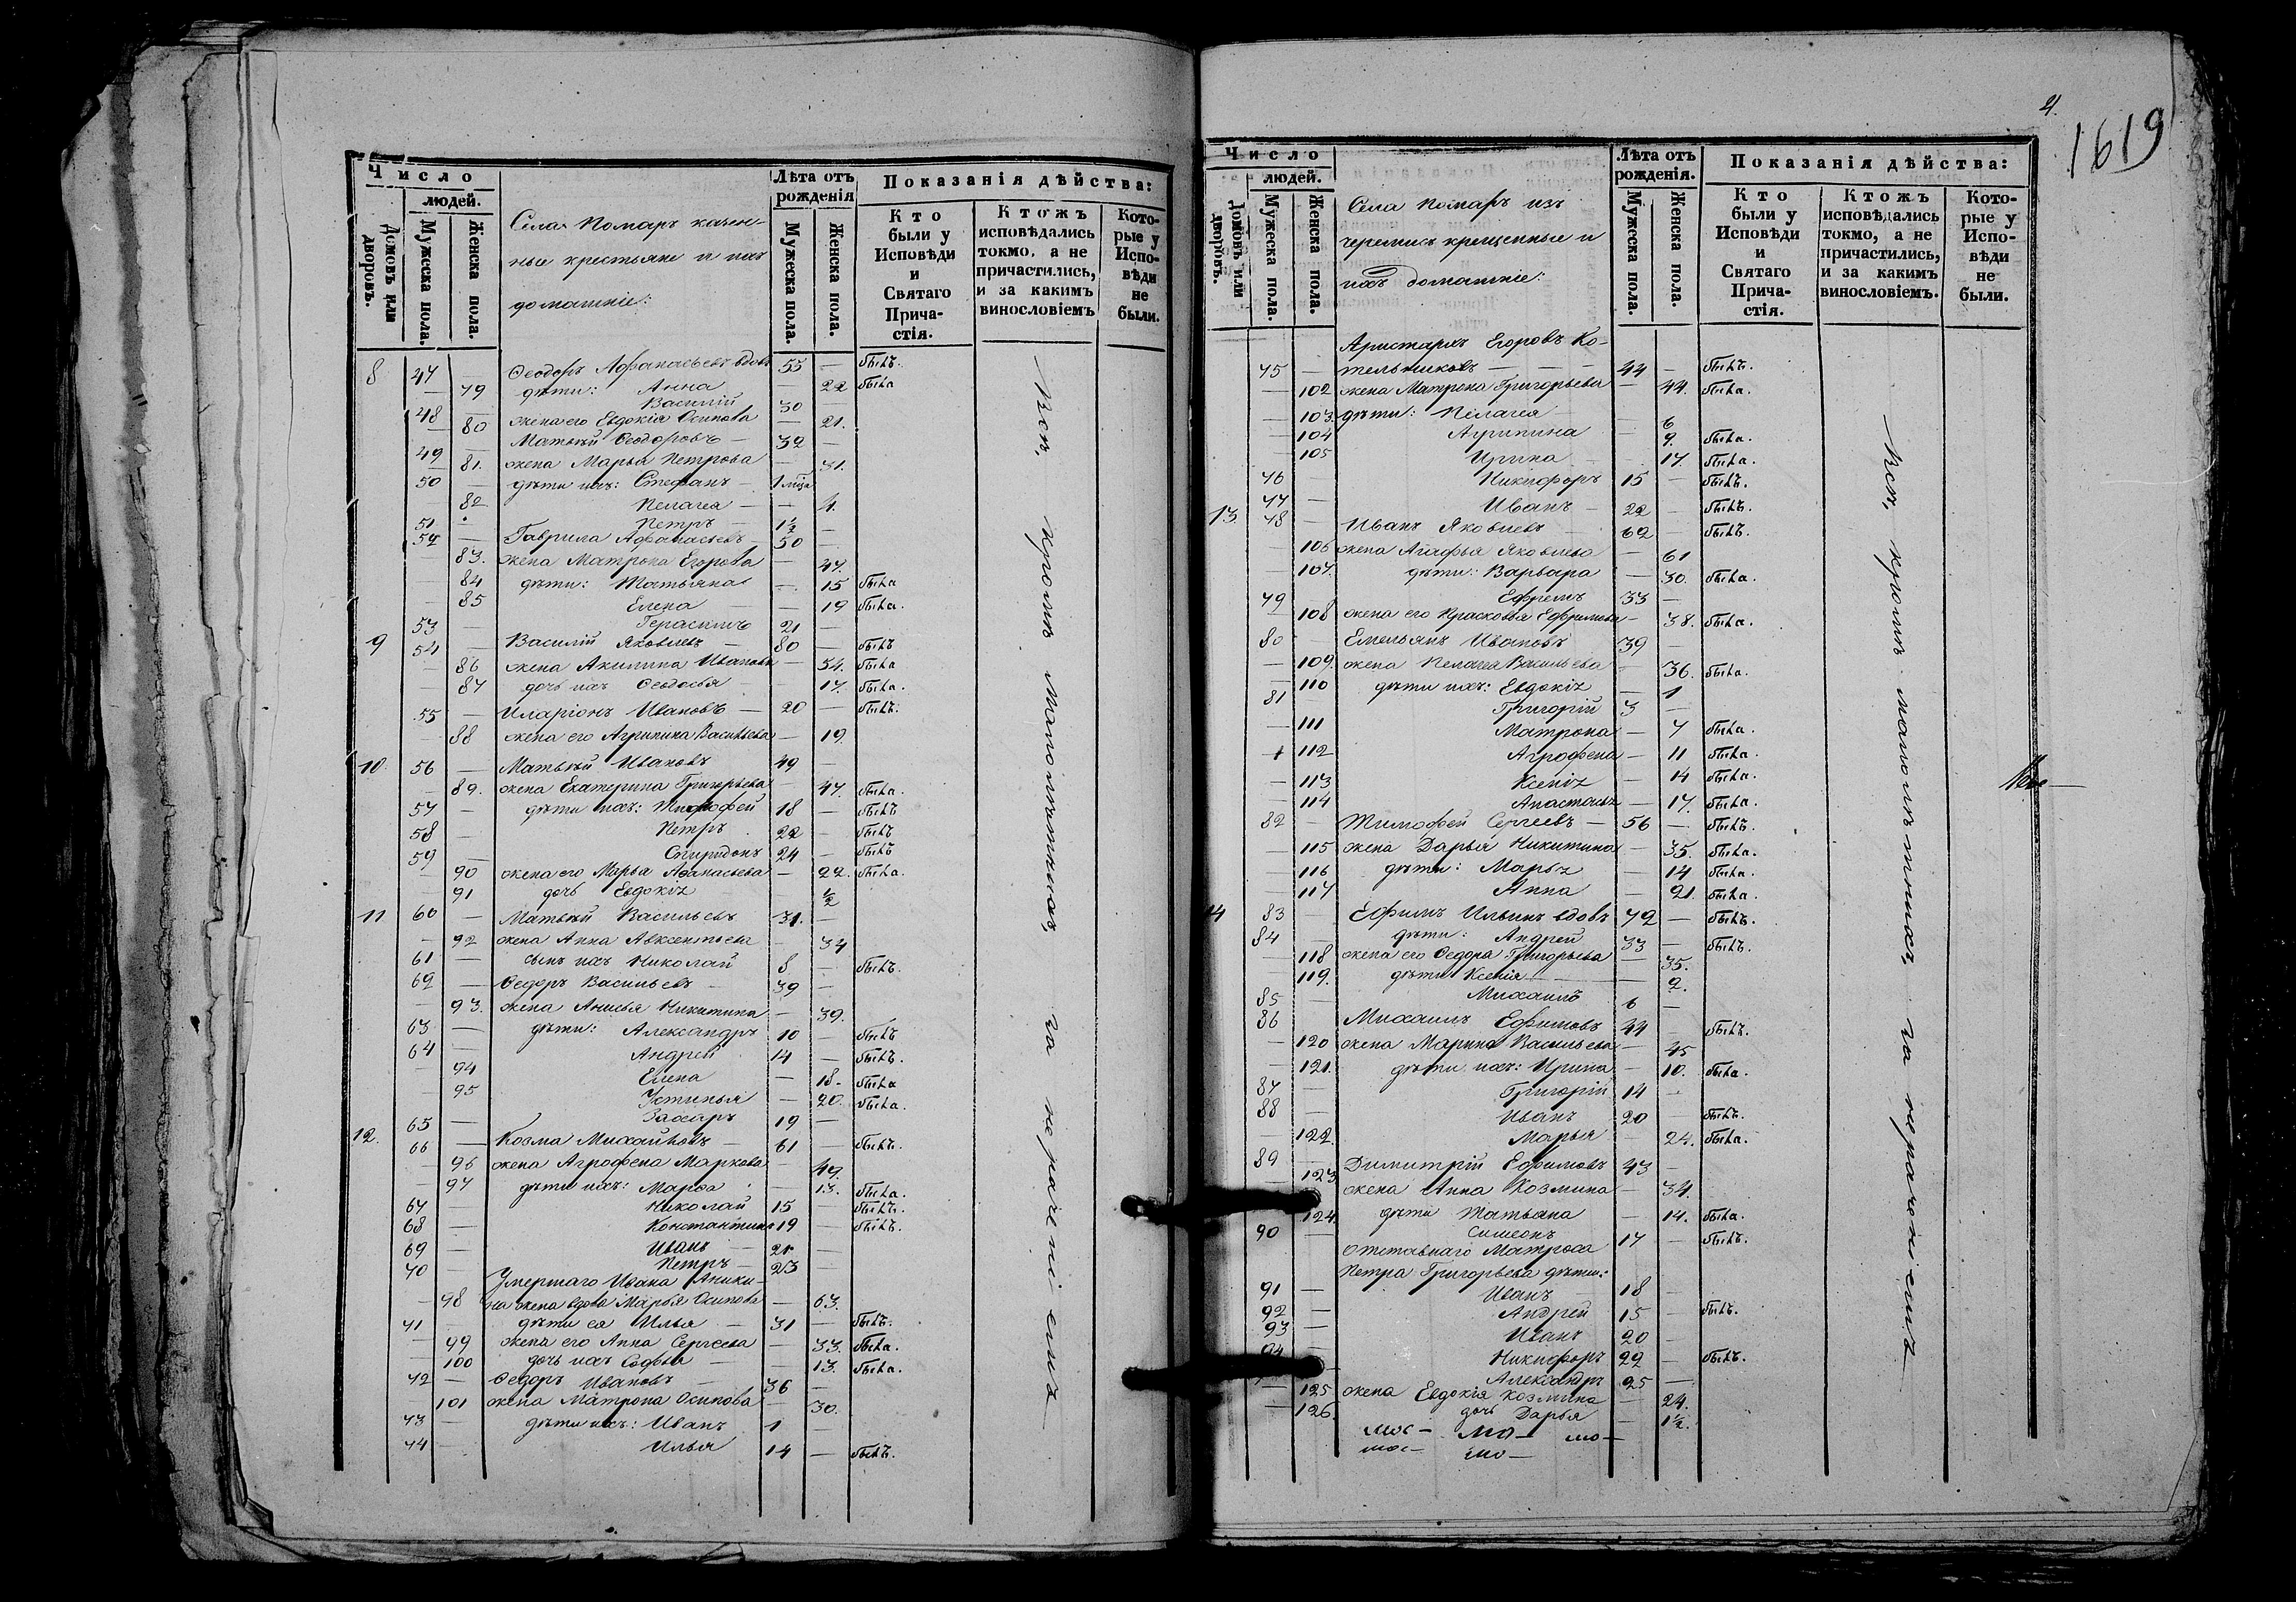 Число
людей.
Домовъ или дворовъ.
Мужеска пола.
Женска пола.
Села Помаръ казен-
ные крестьяне и ихъ
домашніе:
Лѣта отъ рожденія
Мужеска пола.
Женска пола.
Показанія дѣйства:
Кто были у Исповѣди и Святаго Прича-стія.
Ктожъ исповѣдались токмо, а не причастились, и за какимъ винословіемъ
Кото-рые у Испо-вѣди не были.
8 47 — Ѳеодоръ Афанасьевъ вдовъ 55 — былъ.
— 79 дѣти: Анна — 22 была
48 — Василій 30
80 жена его Евдокія Осипова — 21.
49 — Матвѣй Ѳеодоровъ — 32 —
— 81. жена Марья Петрова — 31.
50 — дѣти ихъ: Стефанъ —
82 Пелагея — — 4.
51 Петръ — 1½ —
52 — Гаврила Афанасьевъ — 50 —
83. жена Матрона Егорова — 47.
84 дѣти: Татьяна — 15 была
— 85 Елена — 19 была.
53 — Герасимъ 21 —
9 54 — Василій Яковлевъ — 80 — былъ
— 86 жена Акилина Иванова — 54. была
— 87 дочь ихъ Ѳеодосья — 17. была.
55 — Иларіонъ Ивановъ — 20 — былъ.
— 88 жена его Агрипина Васильева — 19.
10. 56 — Матвѣй Ивановъ 49 —
— 89. жена Екатерина Григорьева — 47. была.
57 — дѣти ихъ: Тимофей 18 — былъ
58 — Петръ 22 — былъ
59 — Спиридонъ 24 — былъ
90 жена его Марья Афанасьева — 22. была.
— 91 дочь Евдокія ½
11 60 — Матвѣй Васильевъ 31. —
— 92 жена Анна Авксентьева — 34
61 — сынъ ихъ Николай 8 — былъ.
62 — Ѳедоръ Васильевъ — 39 —
— 93. жена Анисья Никитина — 39.
63 — дѣти: Александръ 10 — былъ
64 — Андрей 14 — былъ.
— 94 Елена — 18. была
— 95 Устинья — 20. была.
65 — Захаръ 19 —
12. 66 — Козма Михайловъ — 61 — былъ.
— 96 жена Агрофена Маркова — 49.
— 97 дѣти ихъ: Марѳа — 13. была.
67 — Николай 15 — былъ.
68 — Константинъ 19 — былъ.
69 — Иванъ — 21 —
70 — Петръ — 23 —
Умершаго Ивана Аники-
— 98 на жена вдова Марья Осипова — 63.
71 — дѣти ея Илья — 31 — былъ.
— 99 жена его Анна Сергеева — 33. была.
— 100 дочь ихъ Софья — — 13. была.
72 — Ѳедоръ Ивановъ — 36 —
101 жена Матрона Осипова — 30.
73 — дѣти ихъ: Иванъ 1 —
74 — Илья 14 — былъ.
Всѣ, кромѣ малолѣтныхъ, за нераченіемъ
4.
1619
Число
людей.
Домовъ или дворовъ.
Мужеска пола.
Женска пола.
Села Помаръ изъ
черемисъ крещенные и
ихъ домашніе:
Лѣта отъ рожденія.
Мужеска пола.
Женска пола.
Показанія дѣйства:
Кто были у Исповѣди и Святаго Прича-стія.
Ктожъ исповѣдались токмо, а не причастились, и за какимъ винословіемъ.
Кото-рые у Испо-вѣди не были.
Аристархъ Егоровъ Ко-
75 — тельниковъ — — — 44 — былъ.
— 102 жена Матрена Григорьева — 44. была.
— 103 дѣти: Пелагея 6
— 104 Агрипина — 9. была.
— 105 Ирина — 17. была.
76 — Никифоръ 15 — былъ.
77 — Иванъ — 22 — былъ.
13. 78 — Иванъ Яковлевъ — 62 — былъ.
— 106 жена Агафья Яковлева — 61
— 107. дѣти: Варвара — 30. была.
79 Ефремъ 33 —
— 108 жена его Прасковья Ефимова — 38. была.
80 — Емельянъ Ивановъ 39 —
— 109. жена Пелагея Васильева — 36. была.
— 110 дѣти ихъ: Евдокія — 1
81 — Григорій 3 —
— 111 Матрона — 7 была.
112 Агрофена — 11 была.
— 113 Ксенія — 14 была.
— 114 Анастасья — 17. была.
82 — Тимофей Сергеевъ — 56 — былъ.
— 115 жена Дарья Никитина — 35. была.
— 116 дѣти: Марья — 14 была.
— 117 Анна — 21. была.
14 83 — Ефимъ Ильинъ вдовъ 72 — былъ.
84 — дѣти: Андрей 33 — былъ.
— 118 жена его Ѳедора Григорьева — 35.
— 119. дѣти Ксенія — — 2.
85 — Михаилъ 6 —
86 Михаилъ Ефимовъ 44 — былъ.
— 120 жена Марина Васильева — 45
— 121. дѣти ихъ: Ирина — 10. была.
87 — Григорій 14 —
88 — Иванъ 20 — былъ.
— 122. Марья — 24. была.
89 — Димитрій Ефимовъ 43 —
123 жена Анна Козмина — 34.
124. дѣти Татьяна — 14. была.
90 — Симеонъ 17 — былъ.
отставнаго Матроса
Петра Григорьева дѣти:
91 — Иванъ — 18 —
92 — Андрей 15 — былъ.
93 — Иванъ 20 —
94 Никифоръ 22 — былъ.
Александръ 25 —
— 125 жена Евдокія Козмина — 24.
— 126. дочь Дарья — 1½.
Всѣ, кромѣ малолѣтныхъ, за нераченіемъ